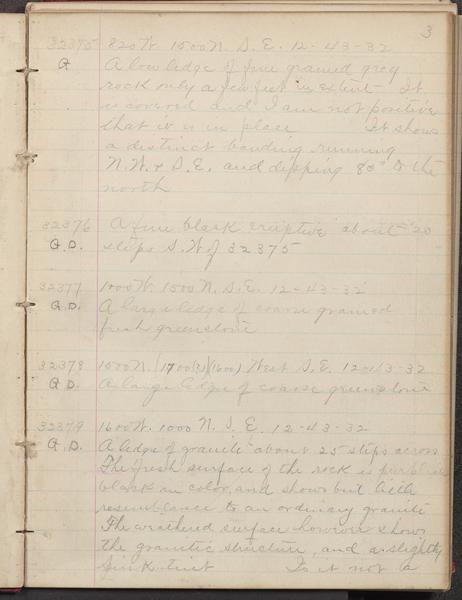 3
32375 820 W. 1500 N. S. E. 12-43-32
Q A low ledge of fine grained grey
rock only a few feet in extent It
is covered and I am not positive
that it is in place It shows
a distinct banding running
N.W. & S.E. and dipping 80° to the
north
32376 A fine black eruptive about 20
Q.D. steps S.W of 32375
32377 1000 W. 1500 N. S.E. 12-43-32
Q.D. A large ledge of coarse grained
fresh greenstone
32378 1500 N. 1700(?)(1600) West S.E. 12-43-32
Q.D. A large ledge of coarse greenstone
32379 1600 W. 1000 N. S. E. 12-43-32
Q.D. A ledge of granite about 25 steps across
The fresh surface of the rock is
black in color, and shows but little
resemblance to an ordinary granite
The weathered surface however shows
the granitic structure, and a slightly
pink tint Is it not a